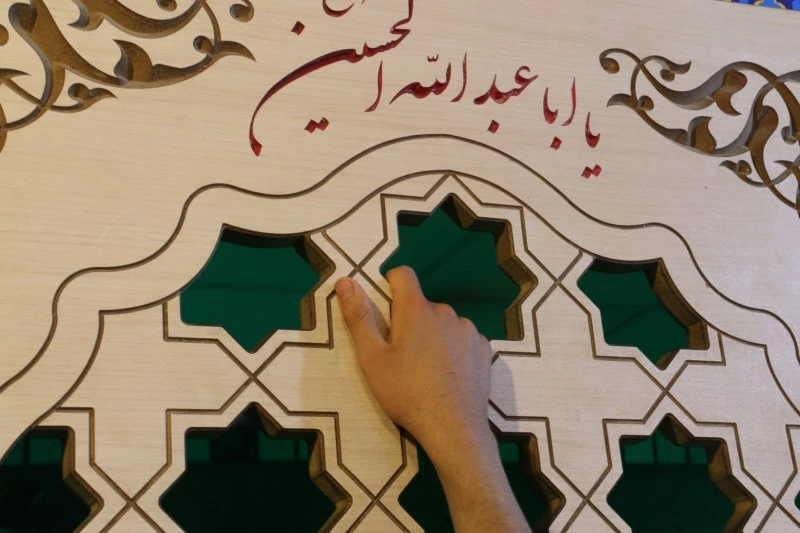 یا ابا عبد الله الحسین